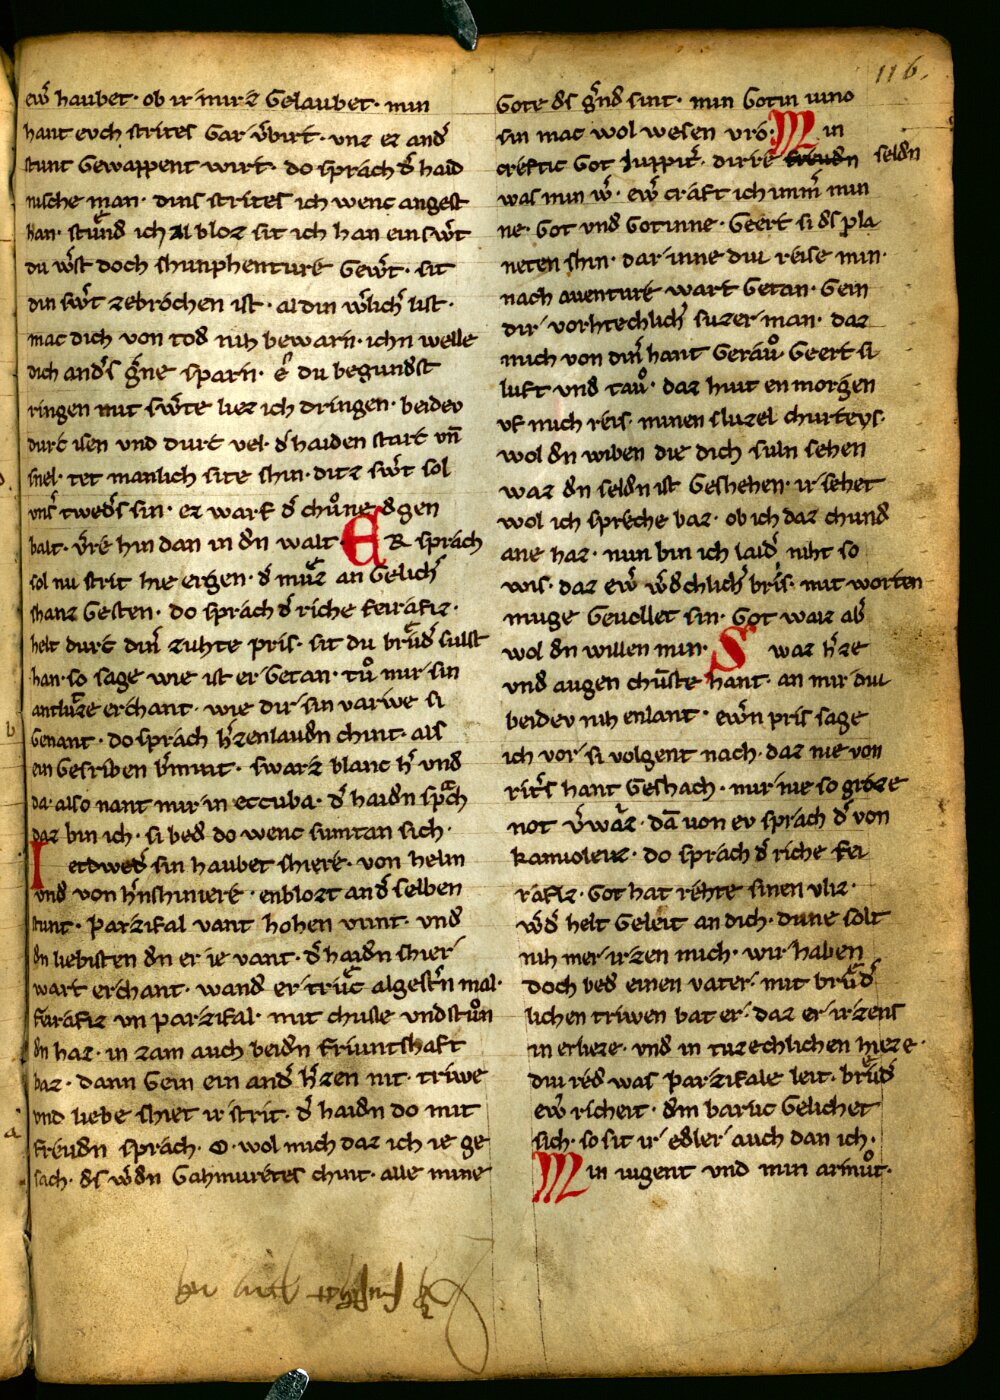 116.
ew̄ haubet · ob ir mirz Gelaubet · mın
hant evch strites Gar v̄birt · vnz er and̄
stunt Gewappent wirt · do sprach d̄ haid
nische man · dins strites ich wenc angest
han · stuͤnd ich al bloz sit ich han ein sw̄t
du w̄st doch shunphenture Gew̄t · sit
din sw̄t zebrochen ist · al din w̄lich̄ list ·
mac dich von tod nih bewarn · ichn welle
dich and̄s ḡne sparn · ê du begund̄st
ringen mit sw̄te liez ich dringen · beidev
durt isen vnd durt vel · d̄ haiden starc vn̄
snel · tet manlich site shin · ditz sw̄t sol
vns̄ twed̄s sin · ez warf d̄ chuͦne d̄gen
balt · v̄re hin dan in d̄n walt · ER sprach
sol nu strit hie ergen · d̄ muͤz an Gelich̄
shanz Gesten · do sprach d̄ riche feirafiz ·
helt durt din̄ zuhte pris · sit du bruͤd̄ sullst
han · so sage wie ist er Getan · tuͦ mir sin
antluͤze erchant · wie dir sin varwe si
Genant · do sprach h̄zenlaud̄n chint · als
ein Gesriben b̄mint · swarz blanc h̄ vnd
da · also nant mir in eccuba · d̄ haid̄n sprach
daz bin ich · si bed̄ do wenc sumtan sich ·
Ietdwed̄ sin haubet shiere · von helm
vnd von h̄nshiniere · enblozt and̄ selben
stunt · Parzifal vant hohen vunt · vnd
d̄n liebisten d̄n er ie vant · d̄ haid̄n shier
wart erchant · wand er truͤc algest̄n mal ·
feirafiz vn parzifal · mit chusse vnd stuͦn
d̄n haz · in zam auch beid̄n friuntshaft
baz · dann Gein ein and̄ h̄zen nit · triwe
vnd liebe shiet ir strit · d̄ haid̄n do mit
freud̄n sprach · O · wol mich daz ich ie ge
sach · d̄s w̄d̄n Gahmuretes chint · alle mine
Gote d̄s ḡnd sint · min Gotin iuno
sin mac wol wesen vro · Min
creftic Got Juppit̄ · dirre freud̄n seld̄n
was mın w̄ · ew̄ craft ich imm̄ min
ne · Got vnd Gotinne · Geert si d̄s pla
neten shin · dar inne diu reise min ·
nach auenture wart Getan · Gein
dir vorhtechlich̄ suzer man · daz
mich von din̄ hant Gerauͦ · Geert si
luft vnd tauͦ · daz hiut en morgen
vf mich reis · minen sluzel churteys ·
wol d̄n wiben die dich suln sehen
waz d̄n seld̄n ist Geshehen · ir sehet
wol ich spreche baz · ob ich daz chund
ane haz · nun bin ich laid̄ niht so
wis · daz ew̄ w̄d̄chlich̄ bris · mit worten
muge Geuollet sin · Got waiz ab̄
wol d̄n willen min · Swaz h̄ze
vnd augen chuͤste hant · an mir diu
beidev nih enlant · ew̄n pris sage
ich vor si volgent nach · daz nie von
rit̄s hant Geshach · mir nie so groze
not v̄waͤz · dā uon ev sprach d̄ von
kanuoleiz · do sprach d̄ riche fei
rafiz · Got hat rehte sinen vliz ·
w̄d̄ helt Geleit an dich · dune solt
nih mer irzen mich · wir haben
doch bed̄ einen vater · mit bruͤd̄
lichen triwen bat er · daz er irzens
in erlieze · vnd in tuzechlichen hieze ·
diu red̄ was Parzifale leit · bruͤd̄
ew̄ richeit · d̄m baruc Gelichet
sich · so sit ir edler auch dan ich ·
Min iugent vnd min armuͦt ·